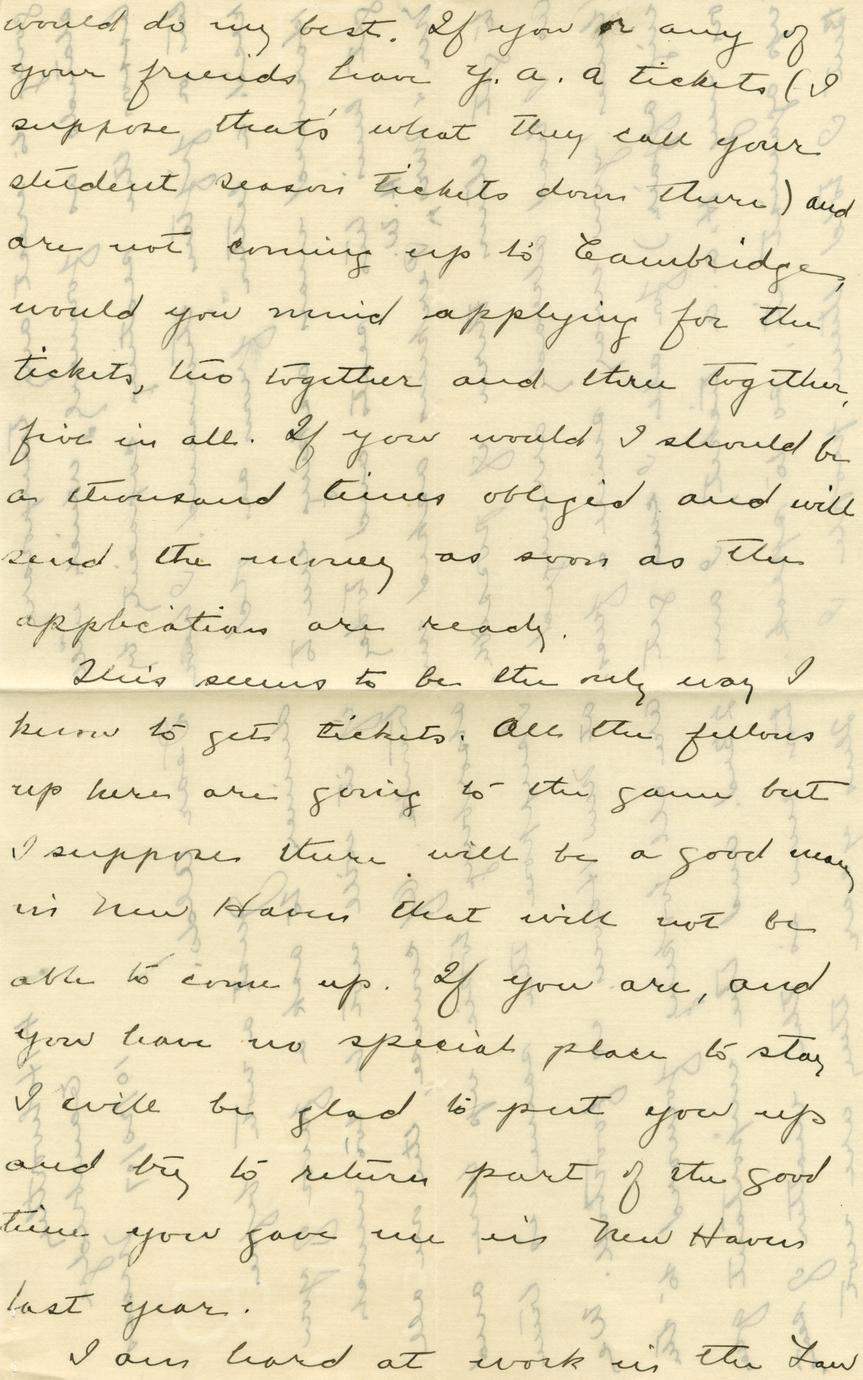 would do my best. If you or any of
your friends have Y. A. A tickets (I
suppose that's what they call your
student season tickets down there) and
are not coming up to Cambridge,
would you mind applying for the
tickets, two together and three together,
five in all. If you would I should be
a thousand times obliged and will
send the money as soon as the
applications are ready.
This seems to be the only way I
know to get tickets. All the fellows
up here are going to the game but
I suppose there will be a good many
in New Haven that will not be
able to come up. If you are, and
you have no special place to stay
I will be glad to put you up
and try to return part of the good
time you gave me in New Haven
last year.
I am hard at work in the Law